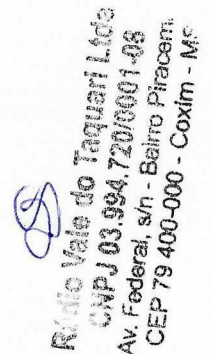 Rádio Vale do Taquari Ltda
CNPJ 03.994.720/0001-03
Av. Federal s/n - Bairro Piracema
CEP 79 400-000 - Coxim - MS